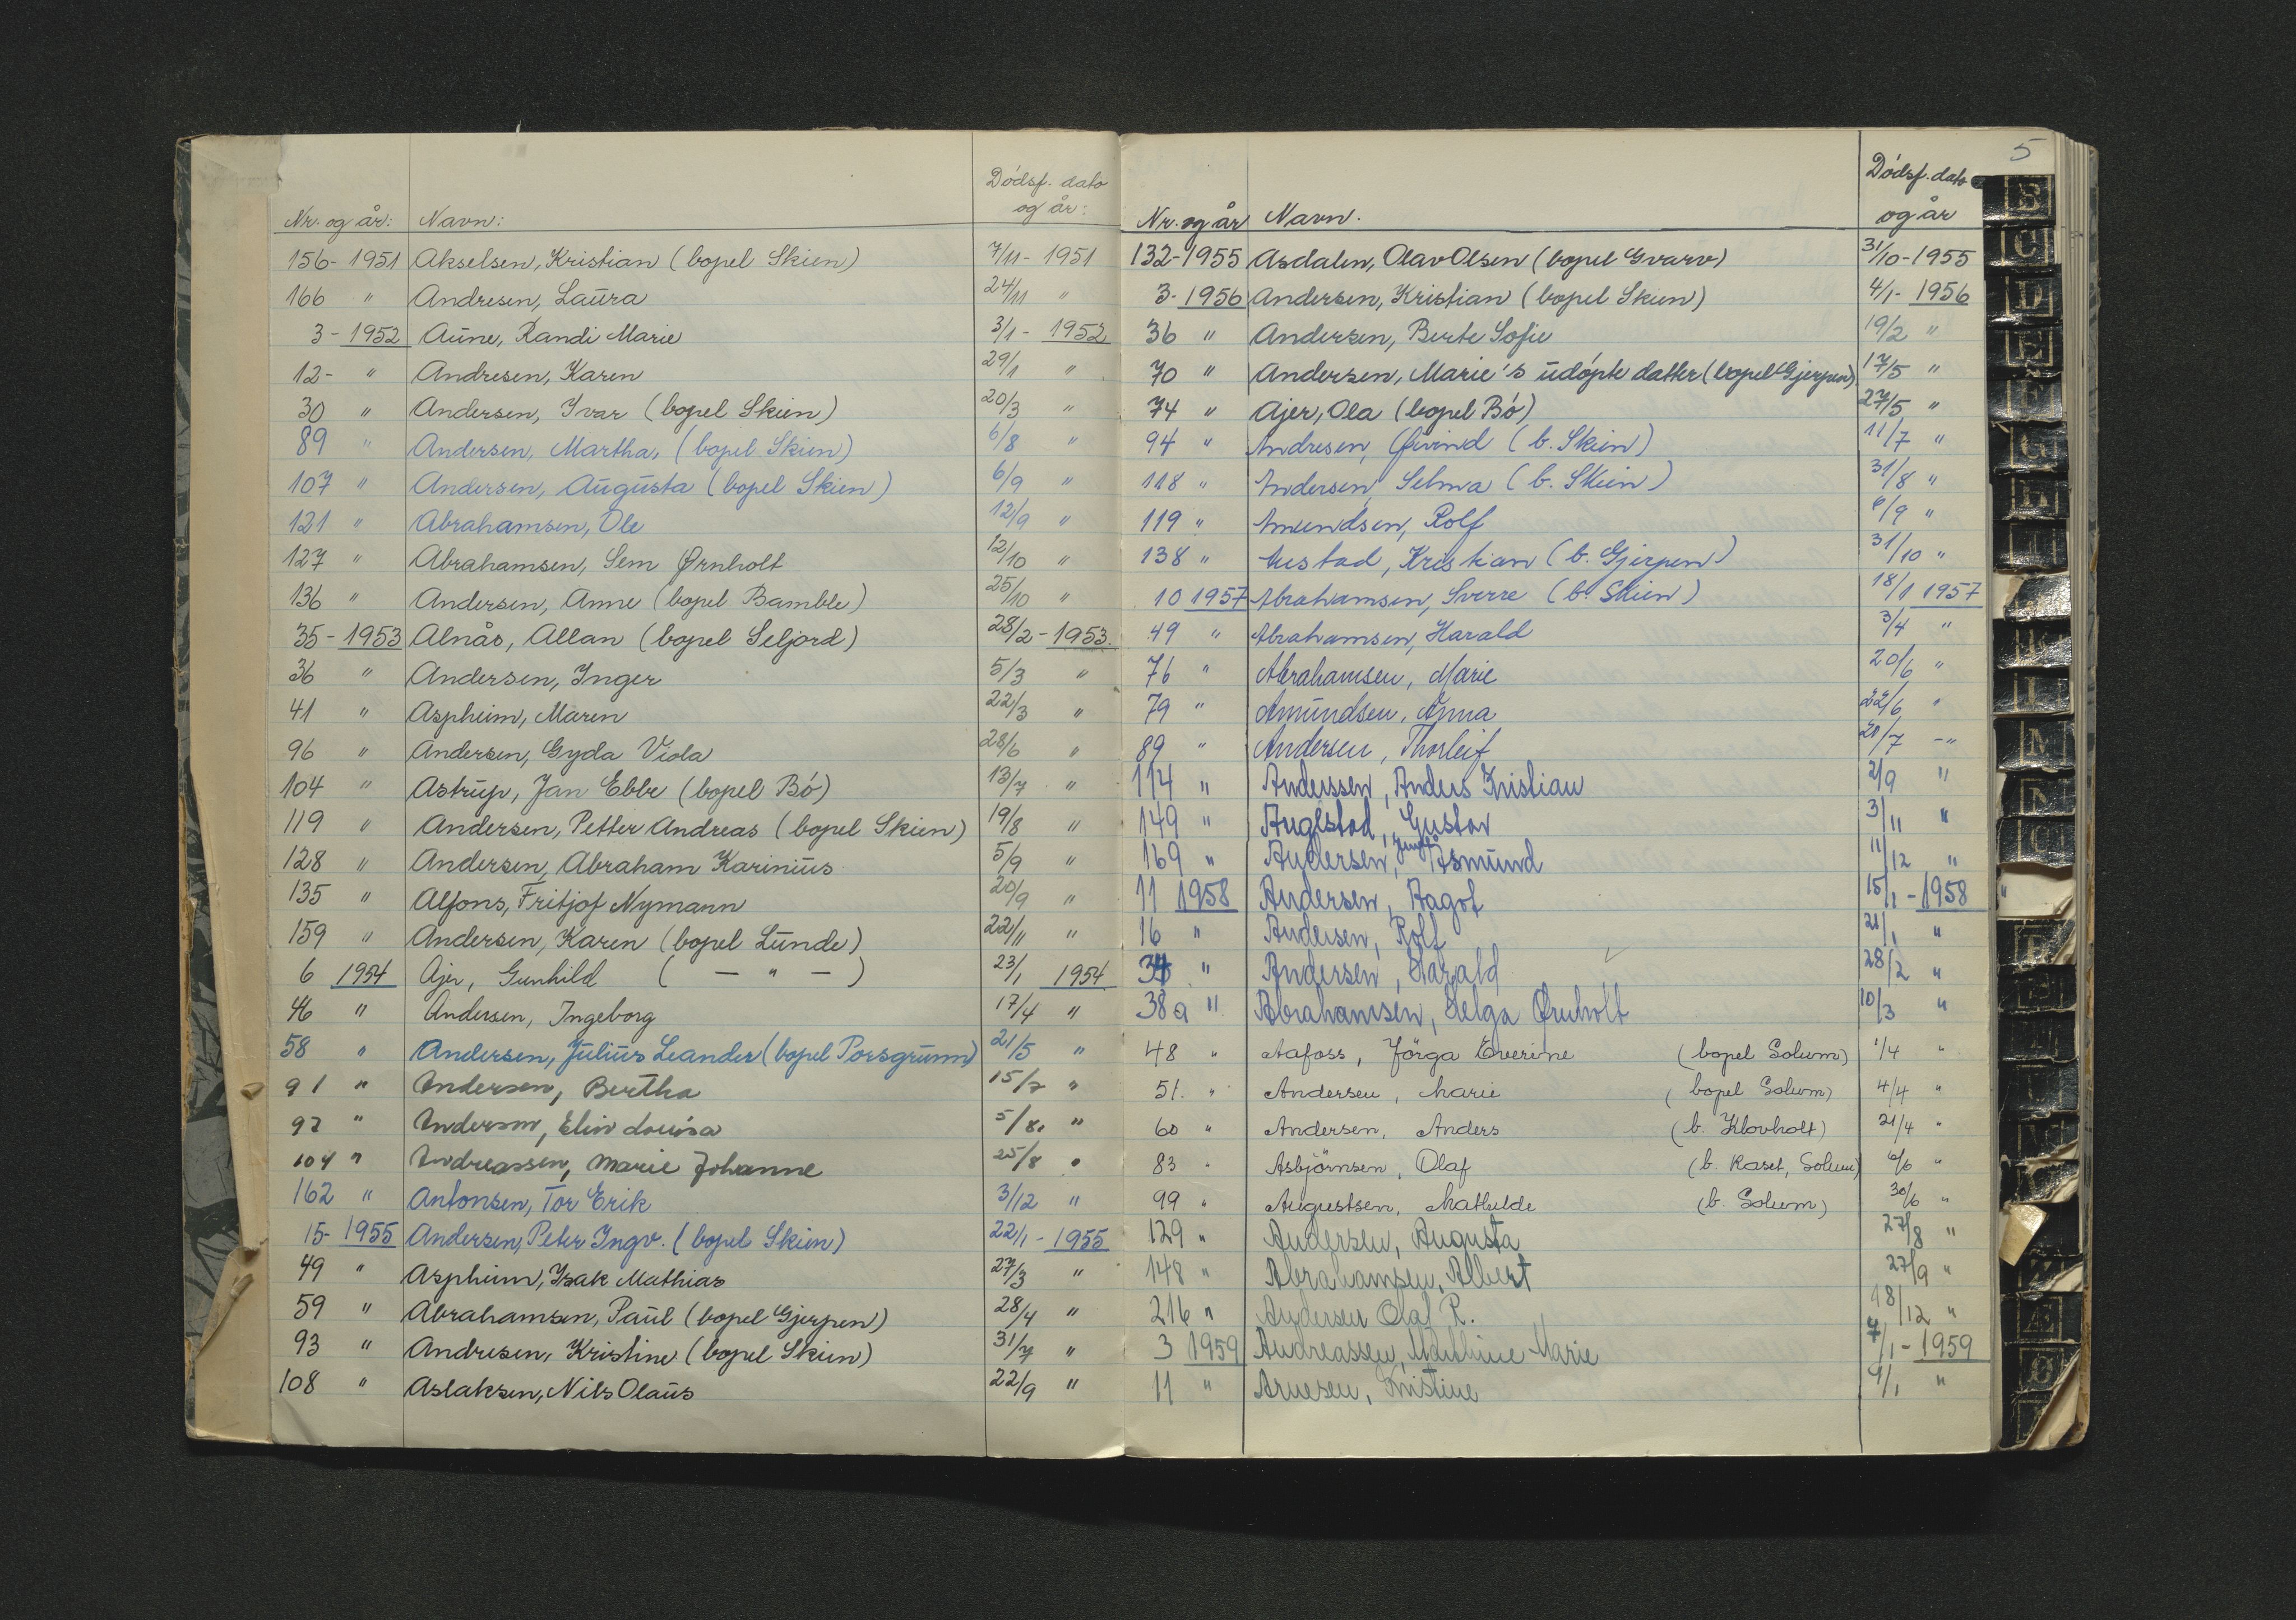 Nr. og år: Navn: Dødsf. dato og år:
156- 1951 Akselsen, Kristian (bopel Skien) 7/11- 1951
166 " Andresen, Laura 24/11 "
3- 1952 Aune, Randi Marie 3/1- 1952
12- " Andresen, Karen 29/1 "
30 " Andersen, Ivar (bopel Skien) 20/3 "
89 " Andersen, Martha, (bopel Skien) 6/8 "
107 " Andersen, Augusta (bopel Skien) 6/9 "
121 " Abrahamsen, Ole 12/9 "
127 " Abrahamsen, Sem Ørnholt 12/10 "
136 " Andersen, Anne (bopel Bamble) 25/10 "
35- 1953 Alnås, Allan (bopel Seljord) 28/2- 1953.
36 " Andersen, Inger 5/3 "
41 " Aspheim, Maren 22/3 "
96 " Andersen, Gyda Viola 28/6 "
104 " Astrup, Jan Ebbe (bopel Bó) 13/7 "
119 " Andersen, Petter Andreas (bopel Skien) 19/8 "
128 " Andersen, Abraham Karinius 5/9 "
135 " Alfons, Fritjof Nymann 20/9 "
159 " Andersen, Karen (bopel Lunde) 22/11 "
6 1954 Ajer, Gunhild ( — " — ) 23/1 1954
46 " Andersen, Ingeborg 17/4 "
58 " Andersen, Julius Leander (bopel Porsgrunn) 21/5 "
91 " Andersen, Bertha 15/7 "
97 " Anderson, Elin Lovisa 5/8. "
104 " Andreassen, Marie Johanne 25/8 "
162 " Antonsen, Tor Erik 3/12 "
15- 1955 Andersen, Peter Ingv. (bopel Skien) 22/1- 1955
49 " Aspheim, Isak Mathias 27/3 "
59 " Abrahamsen, Paul (bopel Gjerpen) 28/4 "
93 " Andresen, Kristine (bopel Skien) 31/7 "
108 " Aslaksen, Nils Olaus 22/9 "
5
Nr. og år Navn. Dódsf. dato og år
132-1955 Asdalen, Olav Olsen (bopel Gvarv) 31/10-1955
3- 1956 Andersen, Kristian (bopel Skien) 4/1- 1956
36 " Andersen, Berte Sofie 19/2 "
70 " Andersen, Marie's udópte datter (bopel Gjerpen) 17/5 "
74 " Ajer, Ola (bopel Bó) 27/5 "
94 " Andresen, Øivind (b. Skien) 11/7 "
118 " Andersen, Selma (b. Skien) 31/8 "
119 " Amundsen, Rolf 6/9 "
138 " Austad, Kristian (b. Gjerpen) 31/10 "
10 1957 Abrahamsen, Sverre (b. Skien) 18/1 1957
49 " Abrahamsen, Harald 3/4 "
76 " Abrahamsen, Marie 20/6 "
79 " Amundsen, Anna 22/6 "
89 " Andersen, Thorleif 20/7 -"
114 " Anderssen, Anders Kristian 2/9 "
149 " Auglstad, Gustav 3/11 "
169 " Andersen, Asmund 11/12 "
11 1958 Andersen, Aagot 15/1- 1958
16 " Andersen, Rolf 21/1 "
34 " Andersen, Harald 28/2 "
38a " Abrahamsen, Helga Ørnholt 10/3 "
48 " Aafoss, Jörga Everine (bopel Solum) 1/4 "
51. " Andersen, Marie (bopel Solum) 4/4 "
60 " Andersen, Anders (b. Klovholt) 21/4 "
83 " Asbjörnsen, Olaf (b. Raset, Solum) 6/6 "
99 " Augustsen, Mathilde (b. Solum) 30/6 "
129 " Andersen, Augusta 27/8 "
148 " Abrahamsen, Albert 27/9 "
216 " Andersen Olaf R. 18/12 "
3 1959 Andreassen, Mathine Marie 7/1- 1959
11 " Arnesen, Kristine 9/1 "
B
C
D
E
F
G
H
I
K
L
M
N
O
P
R
U
Æ
Ø